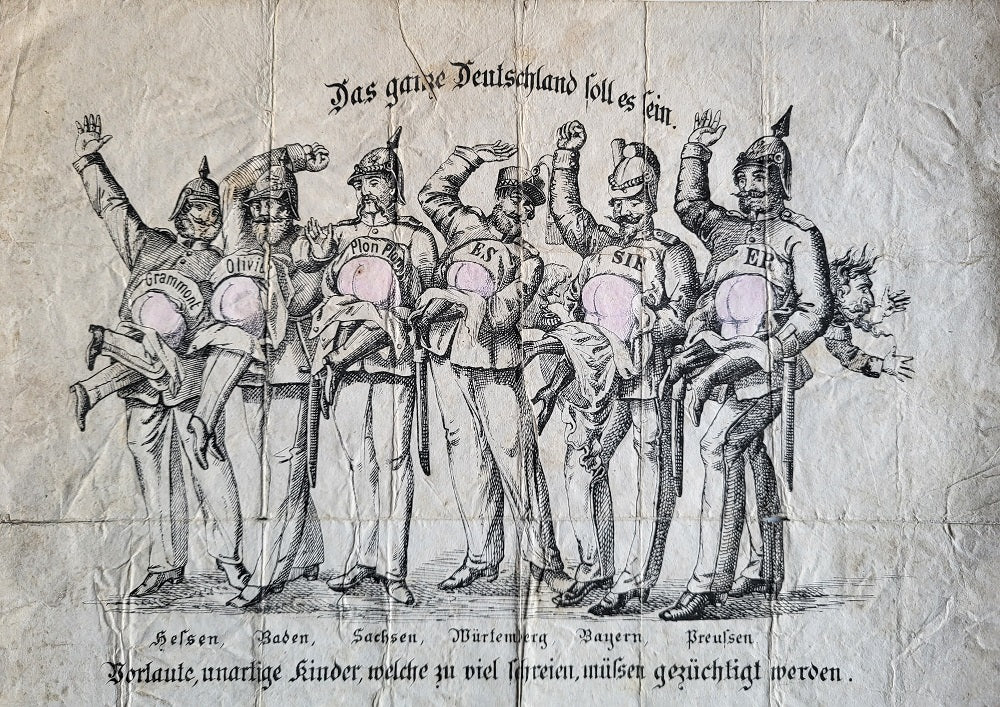 Das ganze Deutschland soll es sein.
Grammont
Olivie
Plon Plon
ES
SIE
ER
Hessen, Baden, Sachsen, Würtemberg Bayern, Preussen.
Vorlaute, unartige Kinder, welche zu viel schreien, müssen gezüchtigt werden.